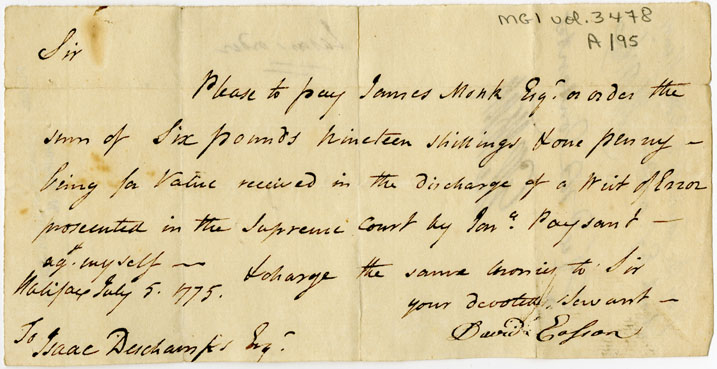 MG1 vol. 3478
A/95
Sir
Please to pay James Monk Esqr. or order the
sum of Six pounds Nineteen shillings & one penny –
being for Value received in the discharge of a Writ of Error
prosecuted in the Supreme Court by Jona. Paysant –
agt. myself – & charge the same Money to Sir
Halifax July 5. 1775.
your devoted Servant –
David Eason
To
Isaac Deschamps Esqr.